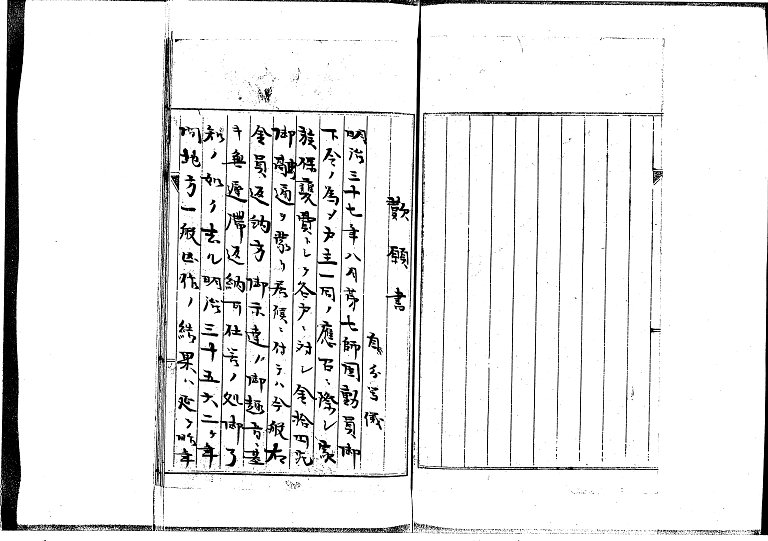 歎願書
自分等儀
明治三十七年八月第七師団動員御
下令ノ為メ戸主一同ノ應召ニ際シ家
族保護費トシテ各戸ニ対シ金拾四円
御 通ヲ蒙リ居候ニ付テハ今般右
金員返納方御示達ノ御趣旨ニ基
キ無遅滞返納可仕筈ノ処御了
知ノ如ク去ル明治三十五六二ケ年
間地方一般凶作ノ結果ハ延テ昨年